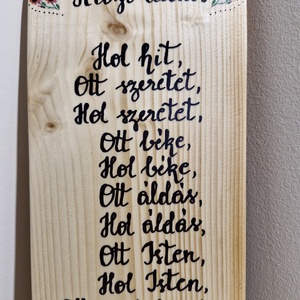 Hol hit,
Ott szeretet,
Hol szeretet,
Ott béke,
Hol béke,
Ott áldás,
Hol áldás,
Ott Isten,
Hol Isten,